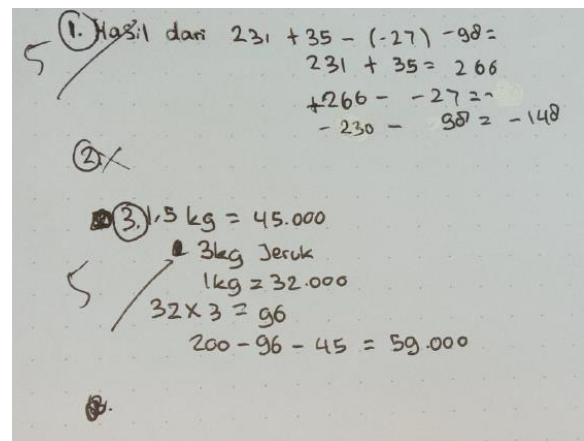 1. Hasil dari 231 + 35 - (-27) -98=
5
231 + 35 = 266
+266 - -27 =-
- 230 - 98 = - 148
2. X
3. 1,5 kg = 45.000
3kg Jeruk
5
1kg = 32.000
32 x 3 = 96
200 - 96 - 45 = 59.000